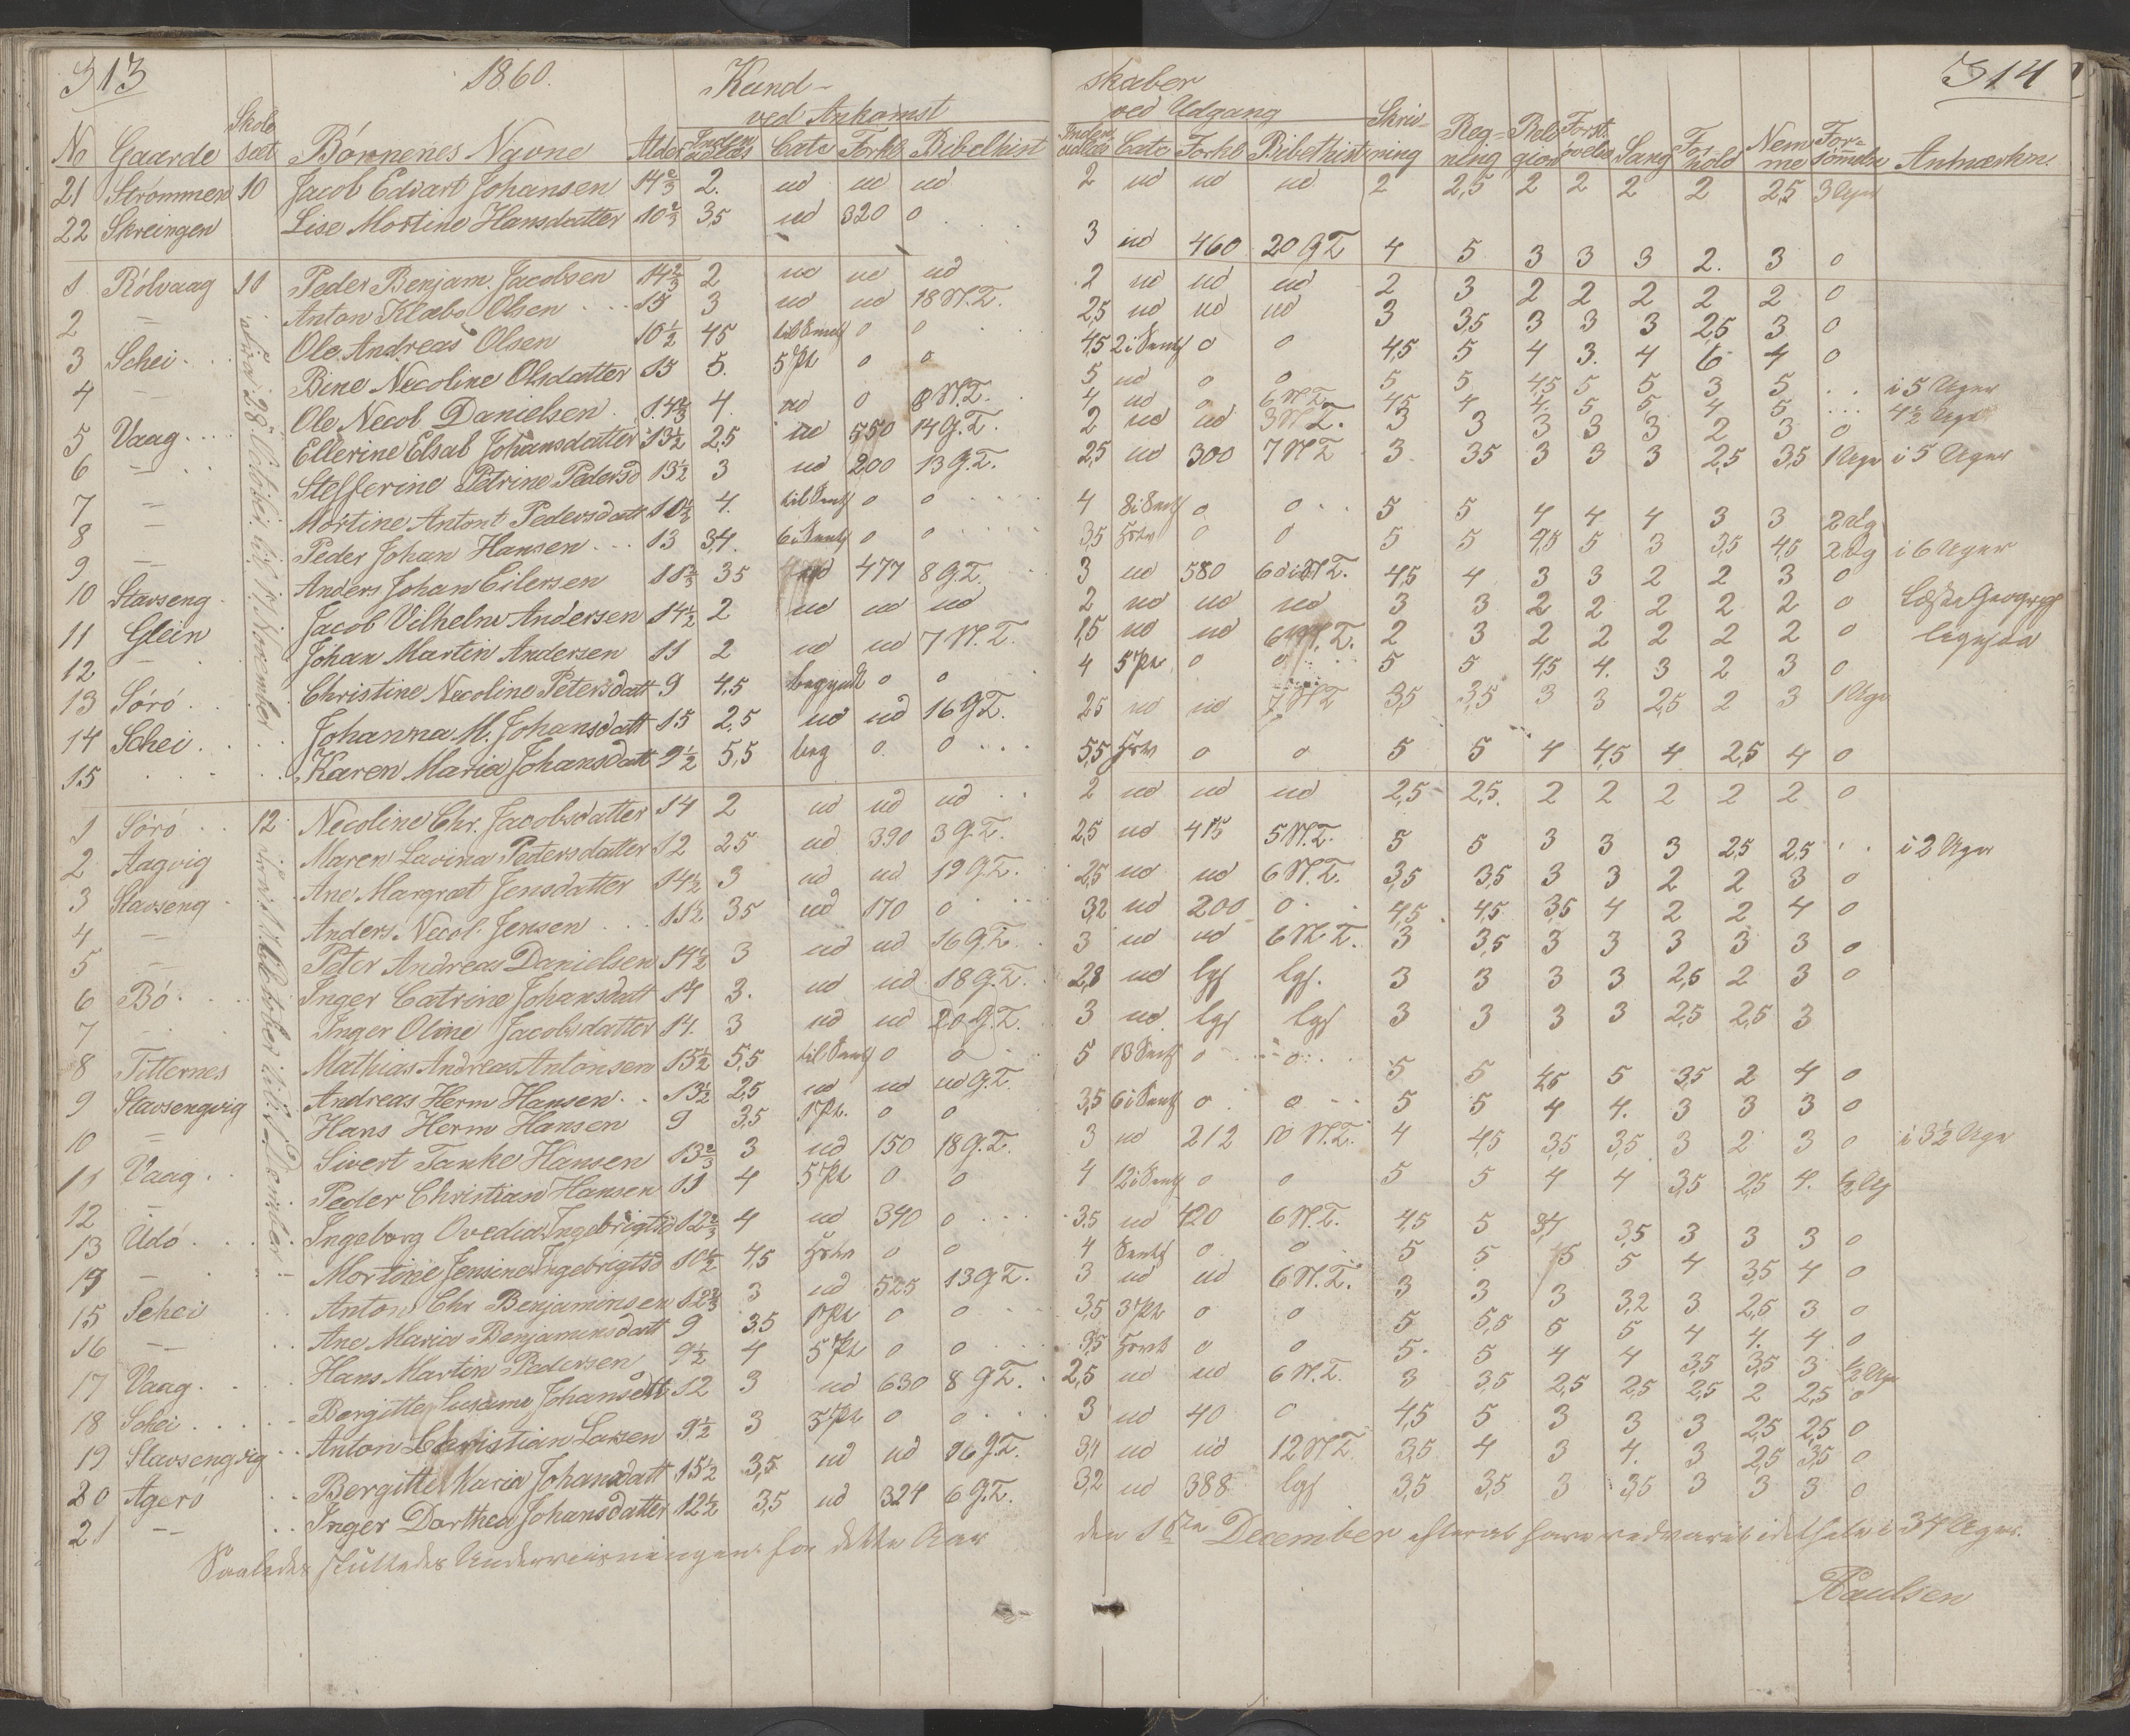 313 1860. Kund- skaber 314
ved Ankomst ved Udgang
No Gaarde Skole sæt Børnenes Navne Alder Inden ad læs Cate Forkl Bibelhist Inden adlæs Cate Forkl Bibelhist Skriv-ning Reg-ning Reli gion Forst. øvelse Sang For hold Nem me For-sømelse Anmærkn.
21 Strømmen 10 Jacob Edvart Johansen 14 2/3 2. ud ud ud 2 ud ud ud 2 2,5 2 2 2 2 2,5 3 Uger
22 Skreingen Lise Mortine Hansdatter 10 2/3 3,5 ud 320 0 3 ud 460 20 G.T. 4 5 3 3 3 2. 3 0
1 Rölvaag 11 Peder Benjam. Jacobsen 14 2/3 2 ud ud ud 2 ud ud ud 2 3 2 2 2 2 2 0
2 — Anton Klæbo Olsen 15 3 ud ud 18 N.T. 2,5 ud ud ud 3 3,5 3 3 3 2,5 3 0
3 Schei Ole Andreas Olsen 10 1/2 4,5 0 0 4,5 0 0 4,5 5 4 3. 4 6 4 0
4 — Bine Necoline Olsdatter 15 5. 5 Pl 0 0 5 ud 0 0 5 5 4,5 5 5 3 5 .. i 5 Uger
5 Vaag Ole Necol. Danielsen 14 2/3 4. ud 0 8 N.T. 4 ud 0 6 N.T. 4,5 4 4 5 5 4 5 ... 4 1/2 Uge
6 — Ellerine Elsab Johansdatter 13 1/2 2,5 ud 550 14 G.T. 2 ud ud 3 N.T. 3 3 3 3 3 2 3 0
7 — Stefferine Petrine Pedersd 13 1/2 3 ud 200 13 G.T. 2,5 ud 300 7 N.T. 3 3,5 3 3 3 2,5 3,5 1 Uge i 5 Uger
8 — Mortine Antont Pedersdatt 10 1/2 4. 0 0 4 0 0 5 5 4 4 4 3 3 2 Ug
9 — Peder Johan Hansen 13 3,4. 0 0 3,5 0 0 5 5 4,5 5 3 3,5 4,5 2 Ug i 6 Uger
10 Stavseng Anders Johan Eilersen 3,5 ud 477 8 G.T. 3 ud 580 4,5 4 3 3 2 2 3 0
11 Glein Jacob Vilhelm Andersen 14 1/2 2 ud ud ud 2 ud ud ud 3 3 2 2 2 2 2 0
12 — Johan Martin Andersen 11 2 ud ud 7 N.T. 1,5 ud ud 2 3 2 2 2 2 2 0
13 Sörö Christine Necoline Petersdatt 9 4,5 0 0 4 5 Pl 0 0 5 5 4,5 4. 3 2 3 0
14 Schei Johanna M. Johansdatt 15 2,5 ud ud 16 G.T. 2,5 ud ud 7 N.T. 3,5 3,5 3 3 2,5 2 3 1 Uge
15 Karen Maria Johansdatt 9 1/2 5,5 beg 0 0 5,5 0 0 5 5 4 4,5 4 2,5 4 0
fra 28de October til 17 November
1 Sörö 12 Necoline Chr. Jacobsdatter 14 2 ud ud ud 2 ud ud ud 2,5 2,5. 2 2 2 2 2 0
2 Aagvig Maren Lavina Petersdatter 12 2,5 ud 390 3 G.T. 2,5 ud 415 5 N.T. 5 5 3 3 3 2,5 2,5 . . i 2 Uger
3 Stavseng Ane Margræt Jensdatter 14 1/2 3 ud ud 19 G.T. 2,5 ud ud 6 N.T. 3,5 3,5 3 3 2 2 3 0
4 — Anders Necol. Jensen 11 1/2 3,5 ud 170 0 3,2 ud 200 0 4,5 4,5 3,5 4 2 2 4 0
5 — Peter Andreas Danielsen 14 1/2 3 ud ud 16 G.T. 3 ud ud 6 N.T. 3 3,5 3 3 3 3 3 0
6 Bö Inger Catrine Johansdatt 14 3. ud ud 18 G.T. 2,8 ud lgs lgs. 3 3 3 3 2,5 2 3 0
7 Inger Oline Jacobsdatter 14. 3 ud ud 20 G.T. 3 ud lgs lgs 3 3 3 3 2,5 2,5 3
8 Titternes Mathias Andreas Antonsen 15 1/2 5,5 0 0 5 0 0 5 5 4,5 5 3,5 2 4 0
9 Stavsengvig Andreas Herm Hansen 13 1/2 2,5 ud ud ud G.T.
10 — Hans Herm Hansen 9 3,5 1 Pl. 0 0 3,5 0 0 5 5 4 4. 3 3 3 0
11 Vaag Sivert Tanke Hansen 13 2/3 3 ud 150 18 G.T. 3 ud 212 10 N.T. 4 4,5 3,5 3,5 3 2 3 0 i 3 1/2 Uge
12 — Peder Christian Hansen 11 4 5 Pl 0 0 4 0 0 5 5 4 4 3,5 2,5 4. 1/2 Ug
13 Udö Ingeborg Ovedia Ingebrigtsd 12 2/3 4 ud 340 0 3,5 ud 420 6 N.T. 4,5 5 3,4 3,5 3 3 3 0
14 — Mortine Jensine Ingebrigtsd 10 1/2 4,5 0 0 4 0 0 5 5 5 5 4 3,5 4 0
15 Schei Anton Chr Benjaminsen 12 2/3 3 ud 525 13 G.T. 3 ud ud 6 N.T. 3 3 3 3,2 3 2,5 3 0
16 — Ane Maria Benjaminsdatt 9 3,5 1 Pl 0 0 3,5 3 Pl 0 0 5 5,5 5 5 4 4. 4 0
17 Vaag Hans Martin Pedersen 9 1/2 4 5 Pl 0 0 3,5 0 0 5. 5 4 4 3,5 3,5 3 1/2 Uge
18 Schei Bergitte Susanne Johansdtt 12 3 ud 630 8 G.T. 2,5 ud ud 6 N.T. 3 3,5 2,5 2,5 2,5 2 2,5 0
19 Stavsengvig Anton Christian Larsen 9 1/2 3 5 Pl 0 0 3 ud 40 0 4,5 5 3 3 3 2,5 2,5 0
20 Agerö Bergitte Maria Johansdatt 15 1/2 3,5 ud ud 16 G.T. 3,4 ud ud 12 N.T. 3,5 4 3 4. 3 2,5 3,5 0
21 — Inger Dorthea Johansdatter 12 1/2 3,5 ud 324 6 G.T. 3,2 ud 388 lgs 3,5 3,5 3 3,5 3 3 3 0
Saaledes sluttedes Underviisningen for dette Aar den 15de December efterat have vedvaret i det hele i 34 Uger.
Paulsen